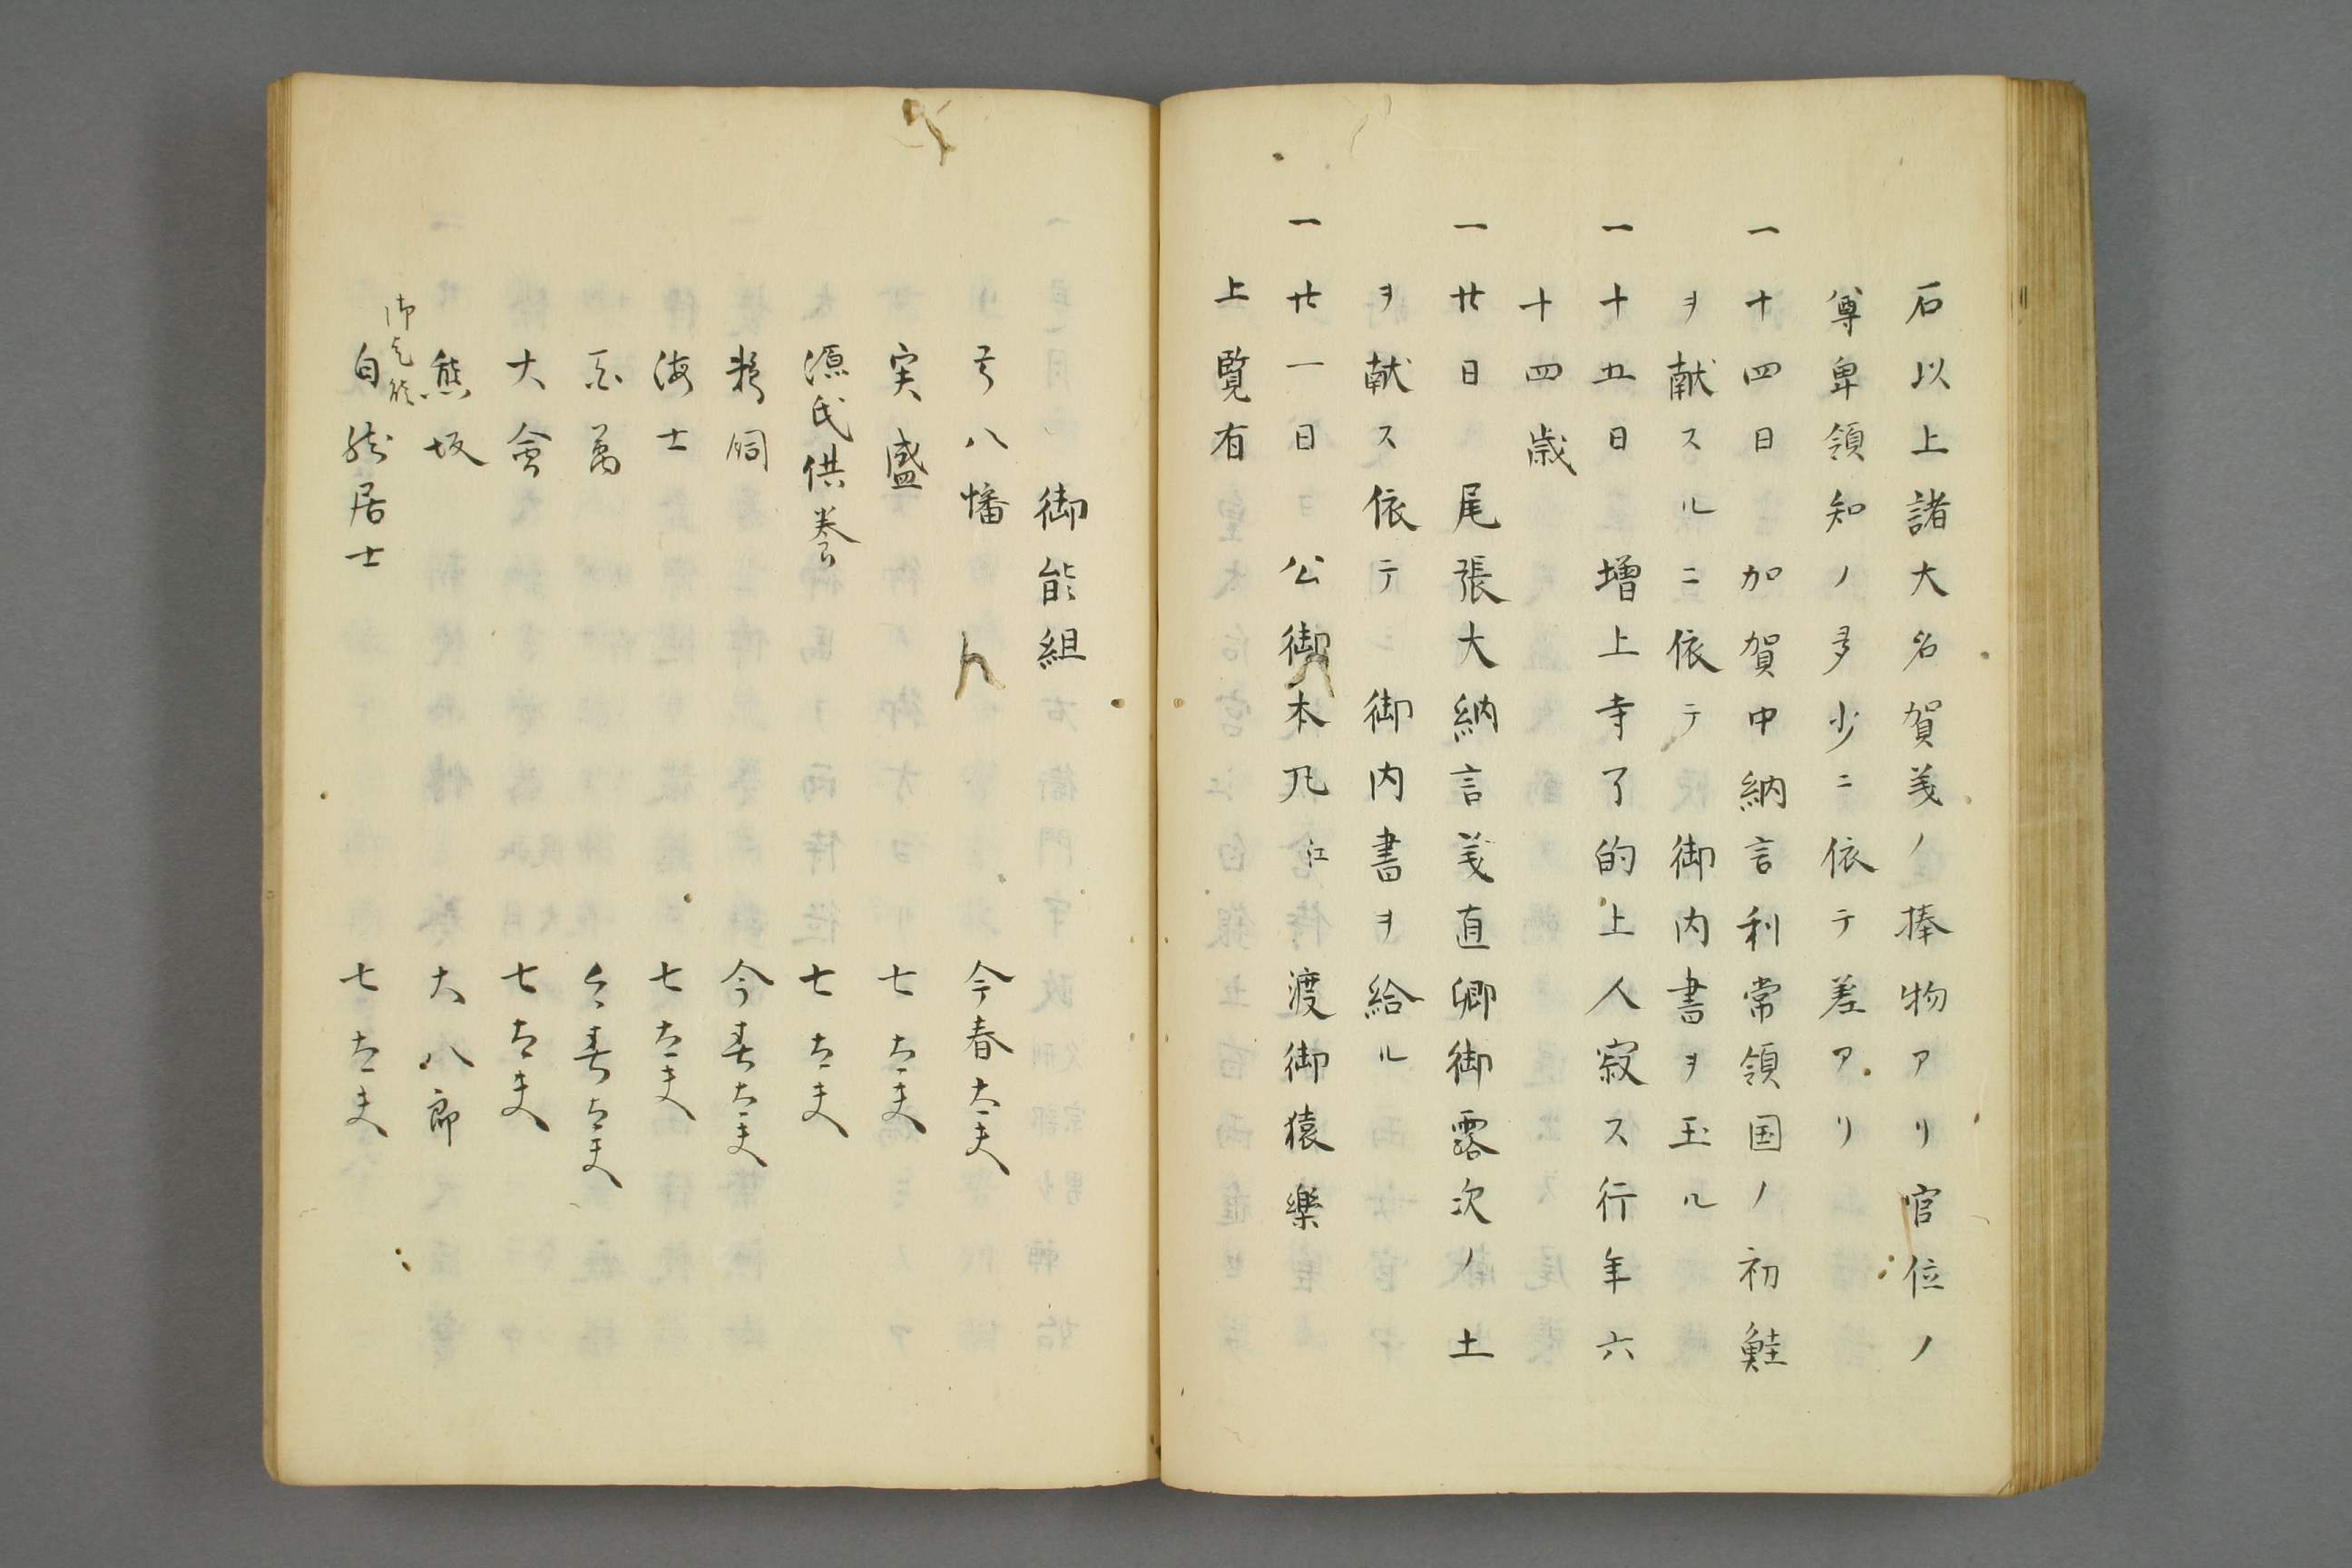 石以上諸大名賀義ノ捧物アリ官位ノ
尊卑領知ノ多少ニ依テ差アリ
一十四日　加賀中納言利常領国ノ初鮭
ヲ献スルニ依テ　御内書ヲ玉ル
一十五日　増上寺了的上人寂ス行年六
十四歳
一廿日　尾張大納言義直卿御露次ノ土
ヲ献ス依テ　御内書ヲ給ル
一廿一日　公御本丸江渡御猿樂
上覧有
御能組
弓八幡　今春太夫
実盛　七太夫
源氏供養　七太夫
鵜飼　今春太夫
海士　七太夫
百萬　今春太夫
大會　七太夫
熊坂　大八郎
御乞能
自然居士　七太夫